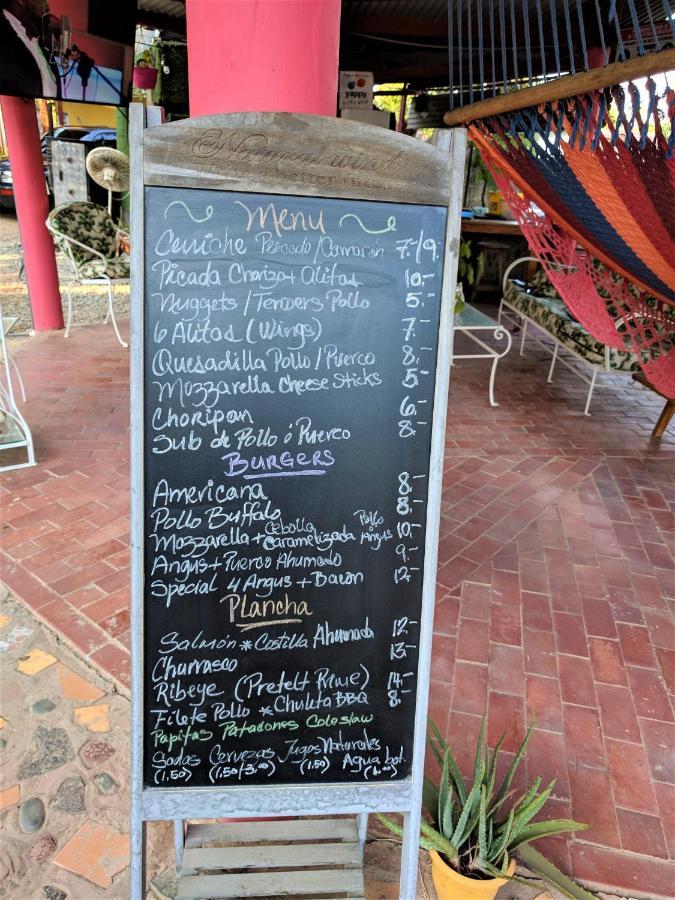 yappy
Natural wind
better
Menu
Ceviche Pescado/Camarón 7-/9.
Picada Chorizo+Alitas 10.-
Nuggets/Tenders Pollo 5.-
6 Alitas (Wings) 7.-
Quesadilla Pollo/Puerco 8.-
Mozzarella Cheese Sticks 5.-
Choripan 6.-
Sub de Pollo ó Puerco 8.-
BURGERS
Americana 8.-
Pollo Buffalo 8.-
Mozzarella + Cebolla Caramelizada Pollo Angus 10.-
Angus+Puerco Ahumado 9.-
Special 4 Angus + Bacon 12.-
Plancha
Salmón * Costilla Ahumada 12.-
Churrasco 13.-
Ribeye (Pretelt Prime) 14.-
Filete Pollo * Chuleta BBQ 8.-
Papitas Patacones Coleslaw
Sodas Cervezas Jugos Naturales Agua bot.
(1.50) (1.50/3.00) (1.50) (1.00)